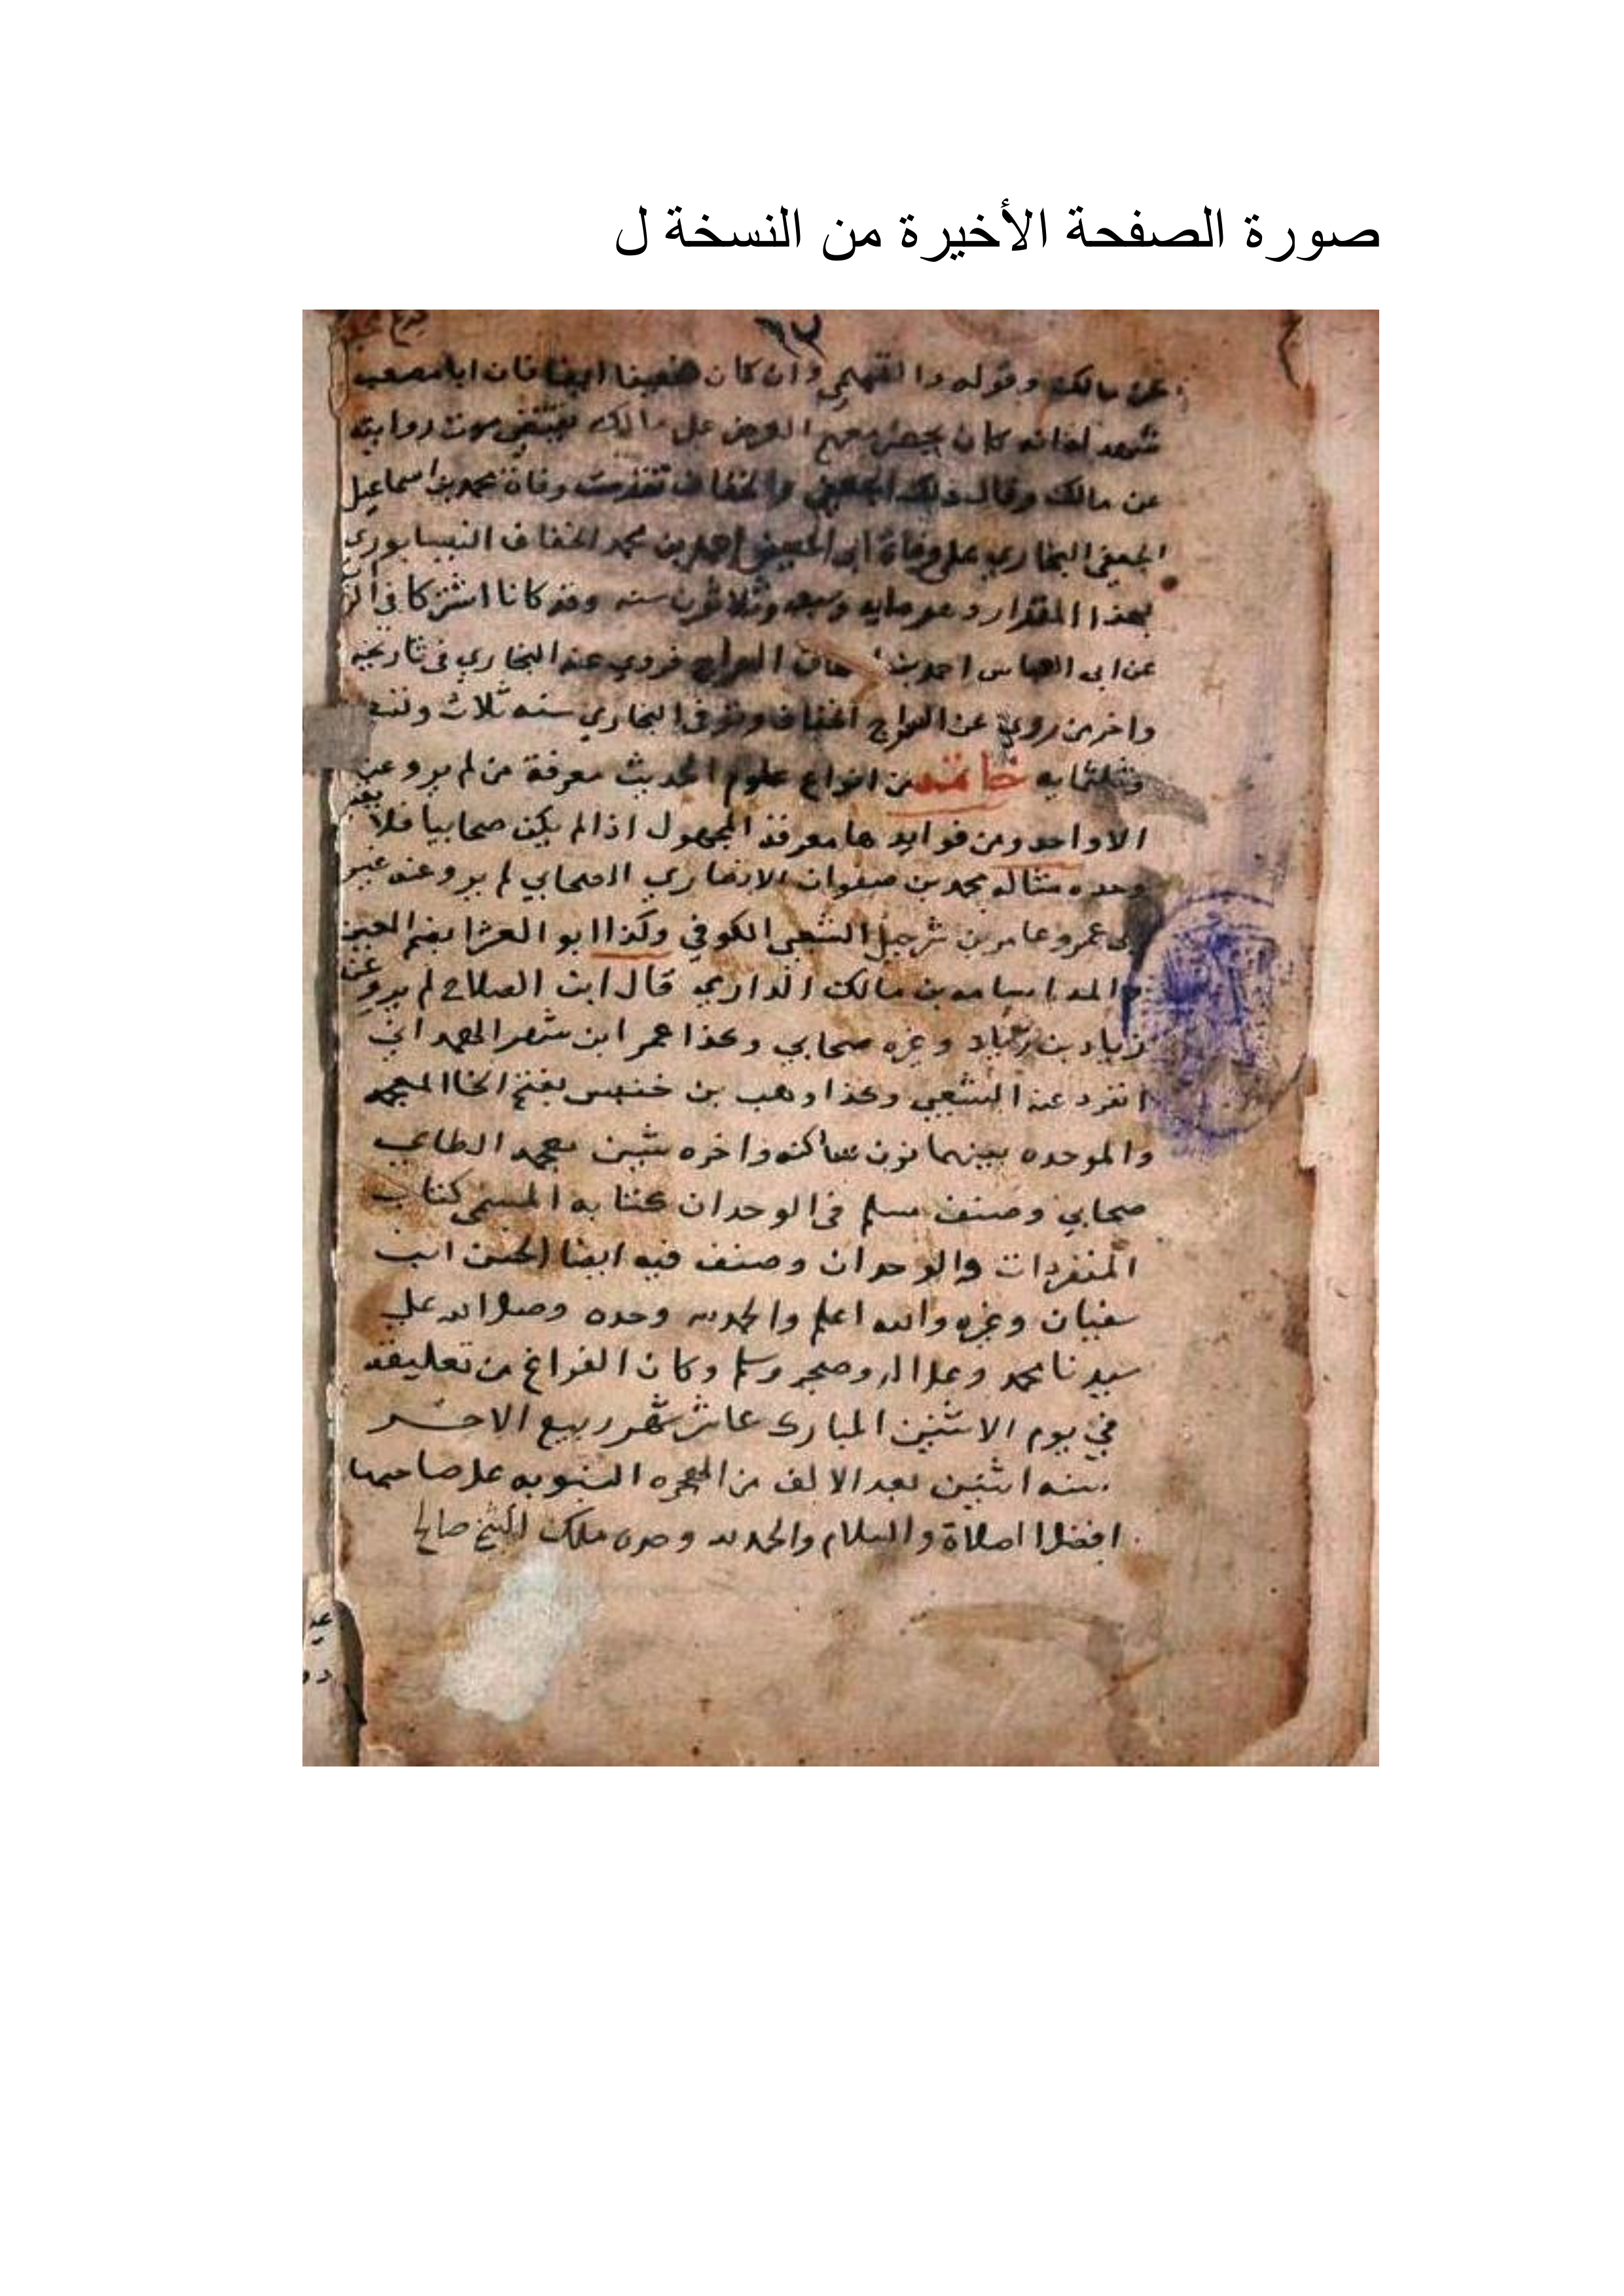 صورة الصفحة الأخيرة من النسخة ل
٩٢
عن مالك وقوله وان كان ايضا فان ابا مصعب
كان العرض على مالك روايته
عن مالك وقال والخفاف تقدمت وفاة محمد بن اسماعيل
الجعفي البخاري على وفاة ابي الحسين احمد بن محمد الخفاف النيسابوري
بهذا المقدار وهو مايه وسبعه وثلاثون سنه وقد كانا اشتركا في
عن ابي العباس احمد بن السراج فروي عنه البخاري في تاريخه
واخر من روي عن السراج الخفاف وتوفي البخاري سنه ثلاث
وثلثمايه خاتمه من انواع علوم الحديث معرفة من لم يرو عن
الا واحد ومن فوايدها معرفة المجهول اذا لم يكن صحابيا فلا
وحده مثاله محمد بن صفوان الانصاري الصحابي لم يرو عنه غير
ابي عمرو عامر بن شرحبيل الشعبي الكوفي وكذا ابو العشرا بضم العين
والمد اسامه بن مالك الداري قال ابن الصلاح لم يرو عن
زياد بن وغيره صحابي وكذا عمر ابن الهمداني
انفرد عنه الشعبي وكذا وهب بن خنبش بفتح الخا المعجمه
والموحده بينهما نون ساكنه واخره شين معجمه الطاي
صحابي وصنف مسلم في الوحدان كتابه المسمى كتاب
المنفردات والوحدان وصنف فيه ايضا الحسن ابن
سفيان وغيره والله اعلم والحمد لله وحده وصلى الله على
سيدنا محمد وعلى اله وصحبه وسلم وكان الفراغ من تعليقه
في يوم الاثنين المبارك عاشر شهر ربيع الاخر
سنه اثنين بعد الالف من الهجره النبويه على صاحبها
افضل الصلاة والسلام والحمد لله